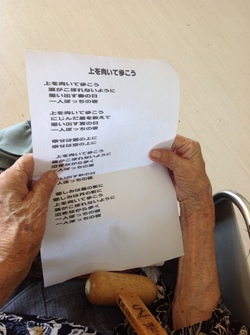 上を向いて歩こう
上を向いて歩こう
涙がこぼれないように
思い出す春の日
一人ぼっちの夜
上を向いて歩こう
にじんだ星を数えて
思い出す夏の日
一人ぼっちの夜
幸せは雲の上に
幸せは空の上に
上を向いて歩こう
涙がこぼれないように
泣きながら歩く
一人ぼっちの夜
一人ぼっちの夜
悲しみは星の影に
悲しみは月の影に
上を向いて歩こう
涙がこぼれないように
泣きながら歩く
一人ぼっちの夜
一人ぼっちの夜